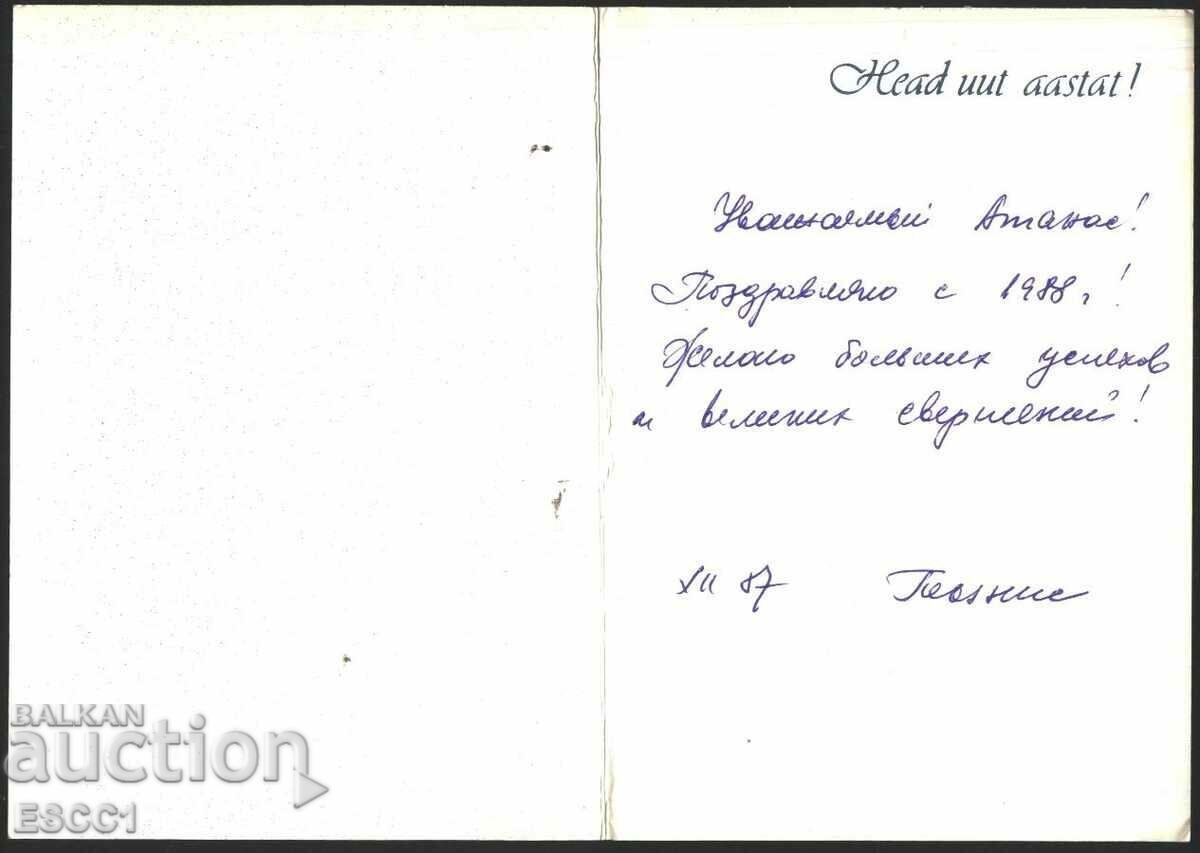 Head uut aastat!
Уважаемый Атанас!
Поздравляю с 1988 г!
Желаю больших успехов
и великих свершений!
XII 87
BALKAN
auction
ESCC1